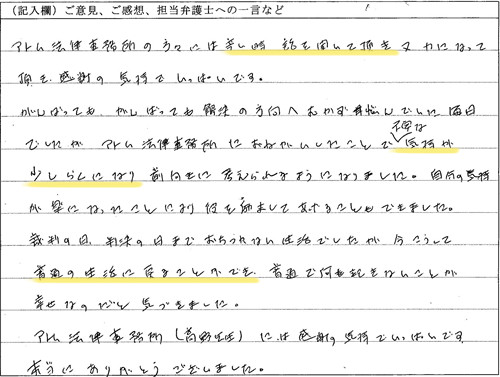 (記入欄) ご意見、ご感想、担当弁護士への一言など
アトム法律事務所の方々には辛い時 話を聞いて頂き 又力になって
頂き、感謝の気持でいっぱいです。
がんばっても がんばっても解決の方向へむかず 悩んでいた毎日
でしたが アトム法律事務所におねがいしたことで 大変な 気持が
少しらくになり 前向きに考えられるようになりました。自分の気持
が楽になったことにより 彼を励ましてあげることもできました。
裁判の日、判決の日までおちつかない生活でしたが 今こうして
普通の生活に戻ることができ、普通で何も起きないことが
幸せなのだと気づきました。
アトム法律事務所(高野先生)には感謝の気持でいっぱいです
本当にありがとうございました。